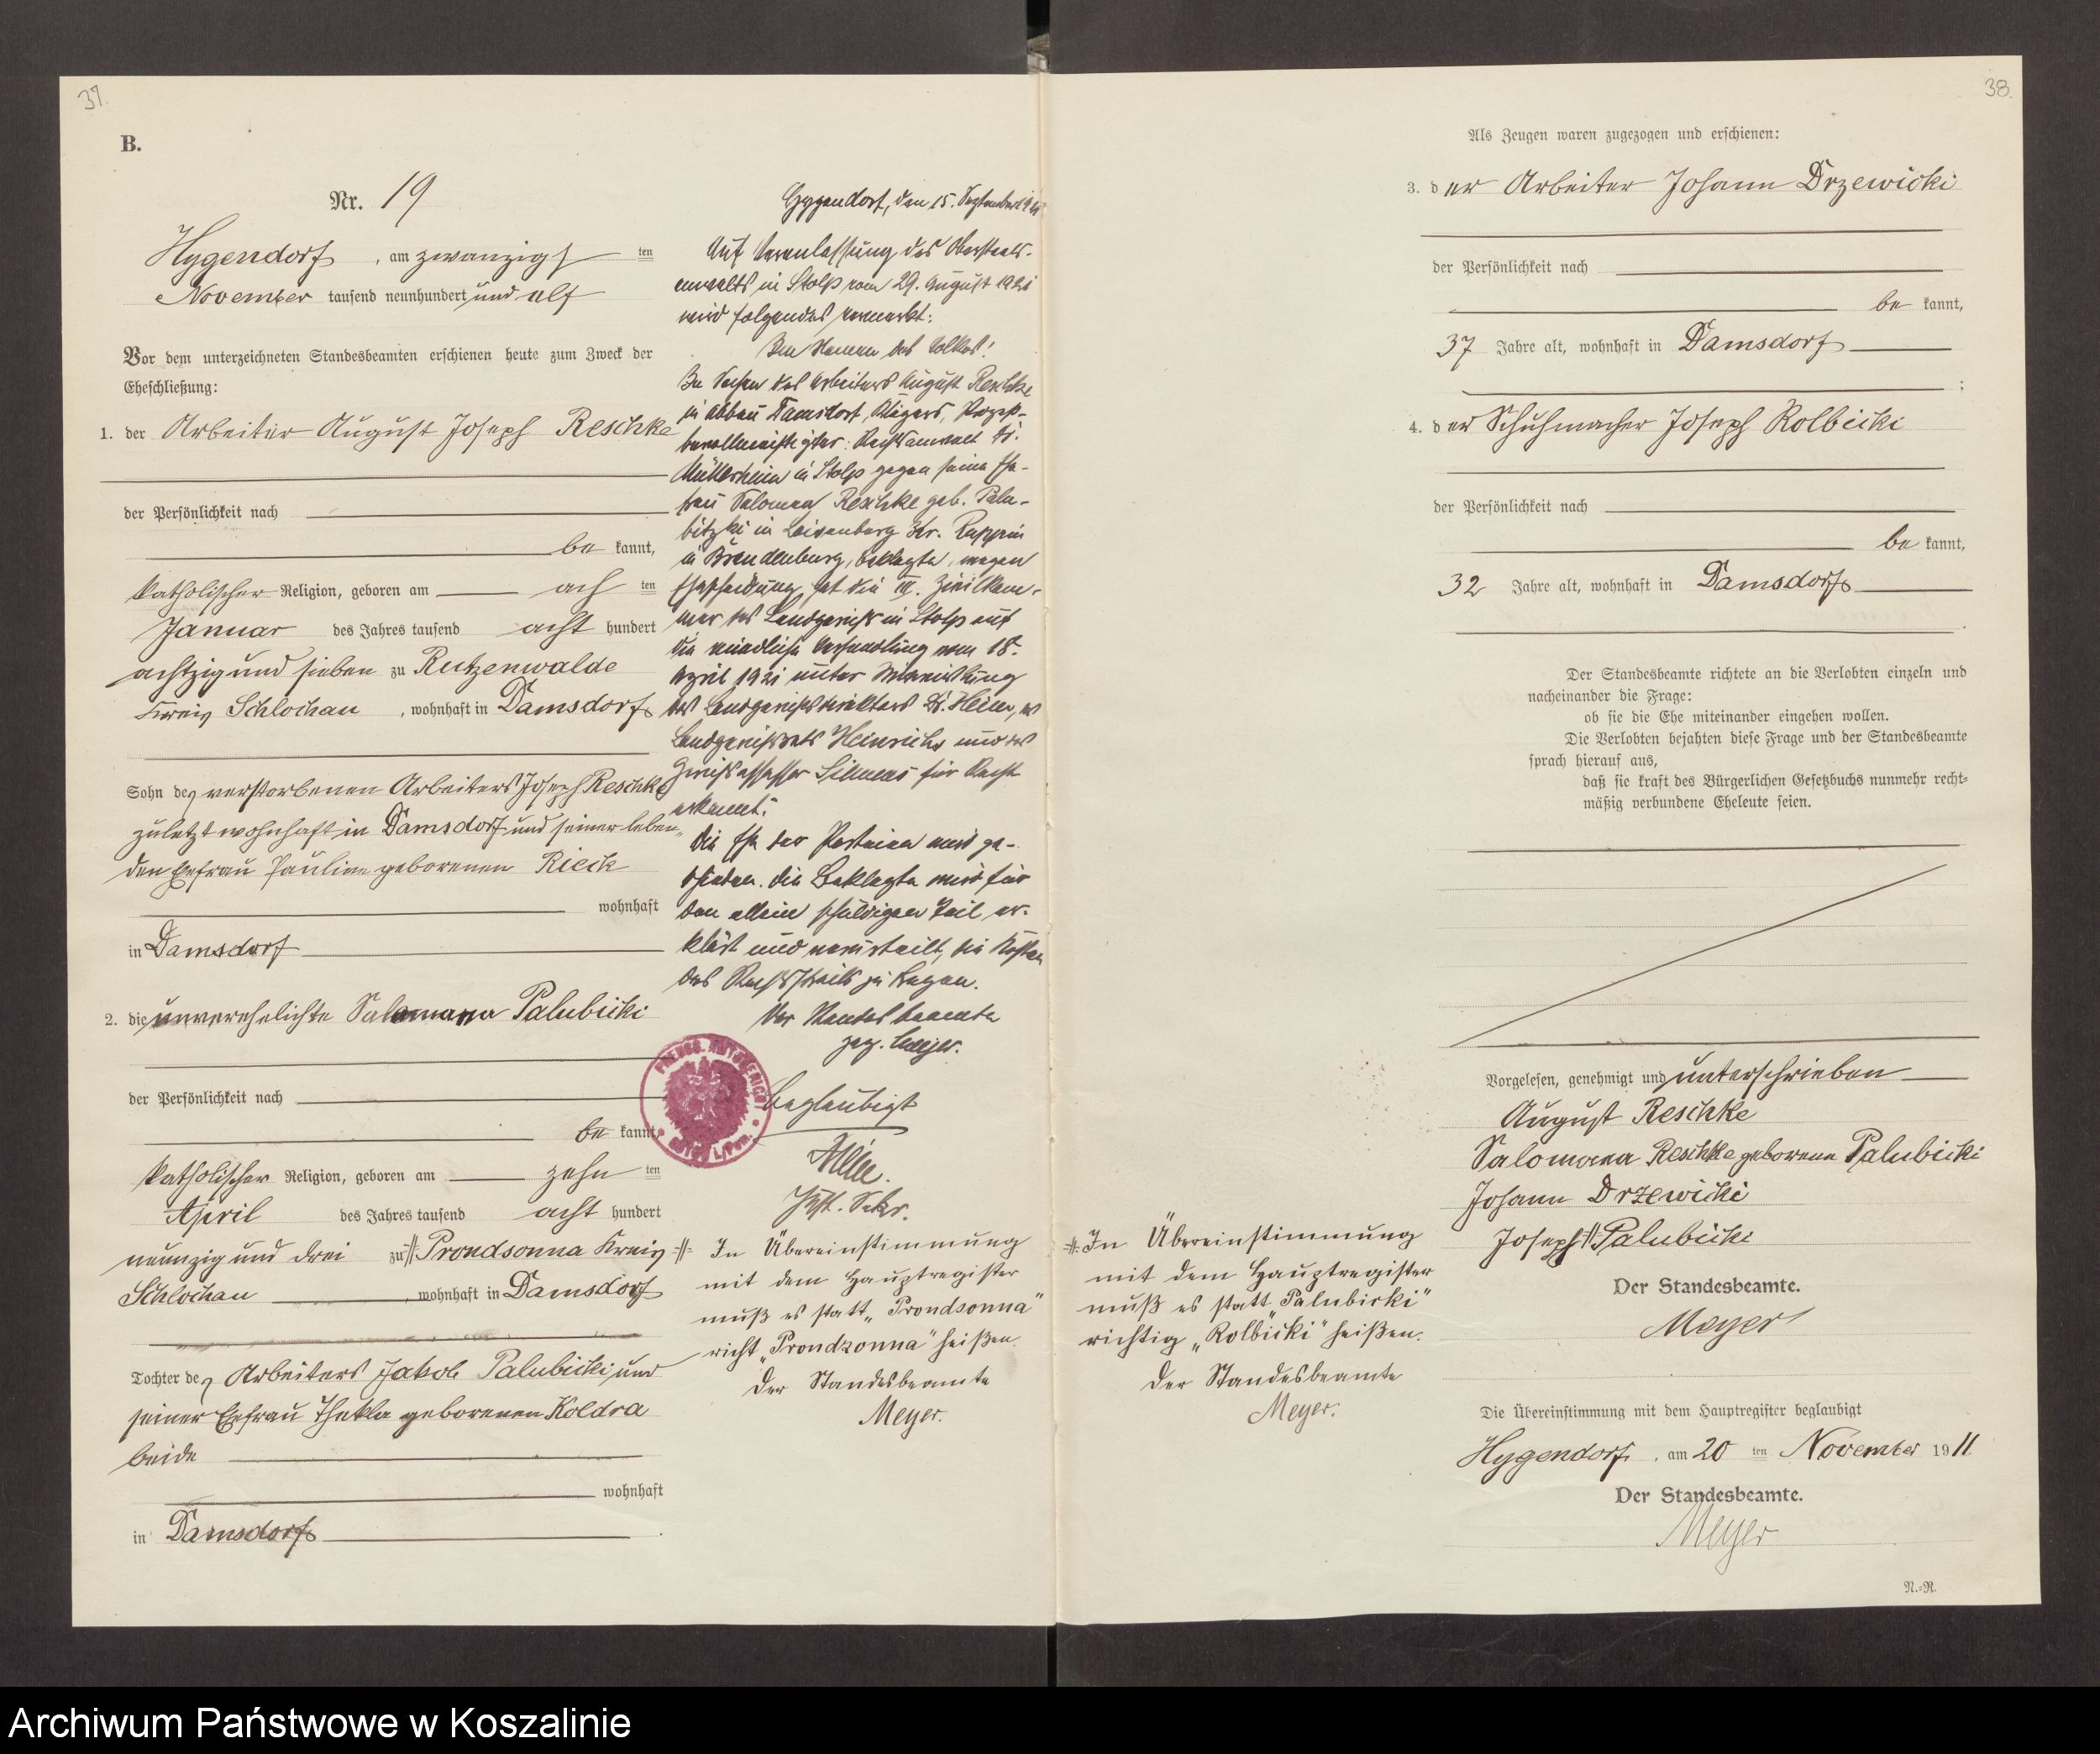 37.
B.
Nr. 19
Hygendorf, am zwanzigsten
November tausend neunhundert und elf
Vor dem unterzeichneten Standesbeamten erschienen heute zum Zweck der
Eheschließung:
1. der Arbeiter August Joseph Reschke
der Persönlichkeit nach
be kannt,
katholischer Religion, geboren am achten
Januar des Jahres tausend acht hundert
achtzig und sieben zu Rutzenwalde
Kreis Schlochau, wohnhaft in Damsdorf
Sohn des verstorbenen Arbeiters Joseph Reschke
zuletzt wohnhaft in Damsdorf und seiner leben-
den Ehefrau Pauline geborenen Rieck
wohnhaft
in Damsdorf
2. die unverehelichte Salomana Palubicki
der Persönlichkeit nach
be kannt,
katholischer Religion, geboren am zehnten
April des Jahres tausend acht hundert
neunzig und drei zu # Prondsonna Kreis
Schlochau, wohnhaft in Damsdorf
Tochter des Arbeiters Jakob Palubicki und
seiner Ehefrau Thekla geborenen Koldra
beide
wohnhaft
in Damsdorf
Gygendorf, den 15. September 1921
Auf Veranlassung des Oberstaats-
anwalts in Stolp vom 29. August 1921
wird folgendes vermerkt:
Im Namen des Volkes!
In Sachen des Arbeiters August Reschke
in Abbau Damsdorf, Klägers, Prozeß-
bevollmächtigter: Rechtsanwalt Dr.
in Stolp gegen seine Ehe-
frau Salomea Reschke geb. Palu-
bitzki in Kr. Ruppin
in Brandenburg, Beklagte, wegen
Ehescheidung hat die III. Zivilkam-
mer des Landgerichts in Stolp auf
die mündliche Verhandlung vom 18.
April 1921 unter Mitwirkung
des Landgerichtsdirektors Dr.
Landgerichtsrats Heinrichs und des
Gerichtsassessor für Recht
erkannt:
Die Ehe der Parteien wird ge-
schieden. Die Beklagte wird für
den allein schuldigen Teil er-
klärt und verurteilt, die Kosten
des Rechtsstreits zu tragen.
Der Standesbeamte
gez. Meyer.
PREUSS. AMTSGERICHT
Beglaubigt
Just. Sekr.
# In Übereinstimmung
mit dem Hauptregister
muß es statt „Prondsonna"
richt „Prondzonna" heißen.
Der Standesbeamte
Meyer.
38.
Als Zeugen waren zugezogen und erschienen:
3. der Arbeiter Johann Drzewicki
der Persönlichkeit nach
be kannt,
37 Jahre alt, wohnhaft in Damsdorf
;
4. der Schuhmacher Joseph Kolbicki
der Persönlichkeit nach
be kannt,
32 Jahre alt, wohnhaft in Damsdorf
Der Standesbeamte richtete an die Verlobten einzeln und
nacheinander die Frage:
ob sie die Ehe miteinander eingehen wollen.
Die Verlobten bejahten diese Frage und der Standesbeamte
sprach hierauf aus,
daß sie kraft des Bürgerlichen Gesetzbuchs nunmehr recht-
mäßig verbundene Eheleute seien.
Vorgelesen, genehmigt und unterschrieben
August Reschke
Salomana Reschke geborene Palubicki
Johann Drzewicki
Joseph # Palubicki
# In Übereinstimmung
mit dem Hauptregister
muß es statt „Palubicki"
richtig „Kolbicki" heißen.
Der Standesbeamte
Meyer.
Der Standesbeamte.
Meyer
Die Übereinstimmung mit dem Hauptregister beglaubigt
Hygendorf, am 20ten November 1911.
Der Standesbeamte.
Meyer
N.-R.
Archiwum Państwowe w Koszalinie